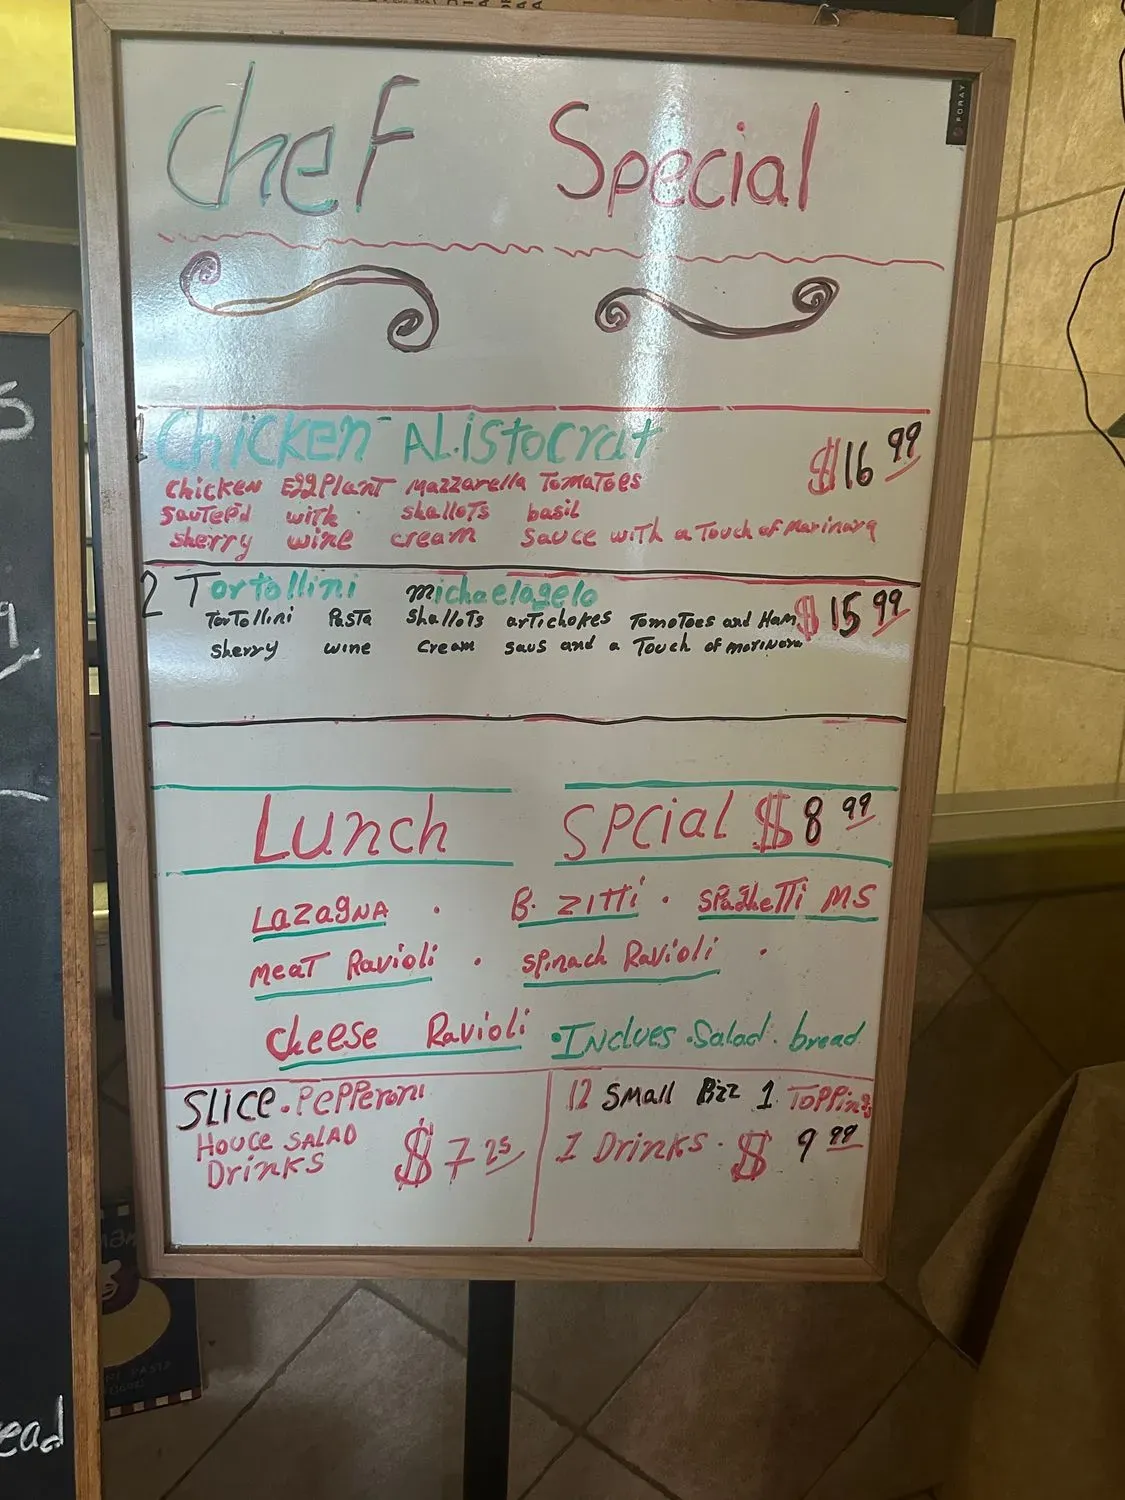 CheF Special
FORAY
1 Chicken AListocrat $16 99
chicken Eggplant Mazzarella Tomatoes
sauteed with shallots basil
sherry wine cream sauce with a Touch of Marinara
2 Tortollini michaelagelo $15 99
Tortollini Pasta shallots artichokes Tomotoes and Ham
sherry wine cream saus and a Touch of marinara
Lunch SPCial $8 99
LazagNA . B. zitti . SPaghetti M S
meaT Ravioli . spinach Ravioli .
cheese Ravioli . Inclues . Salad . bread
SLICE . PePPeroni
House SALAD
Drinks $7 25
12 SMall Pizz 1 TOPPing
1 Drinks . $ 9 99
9
ead